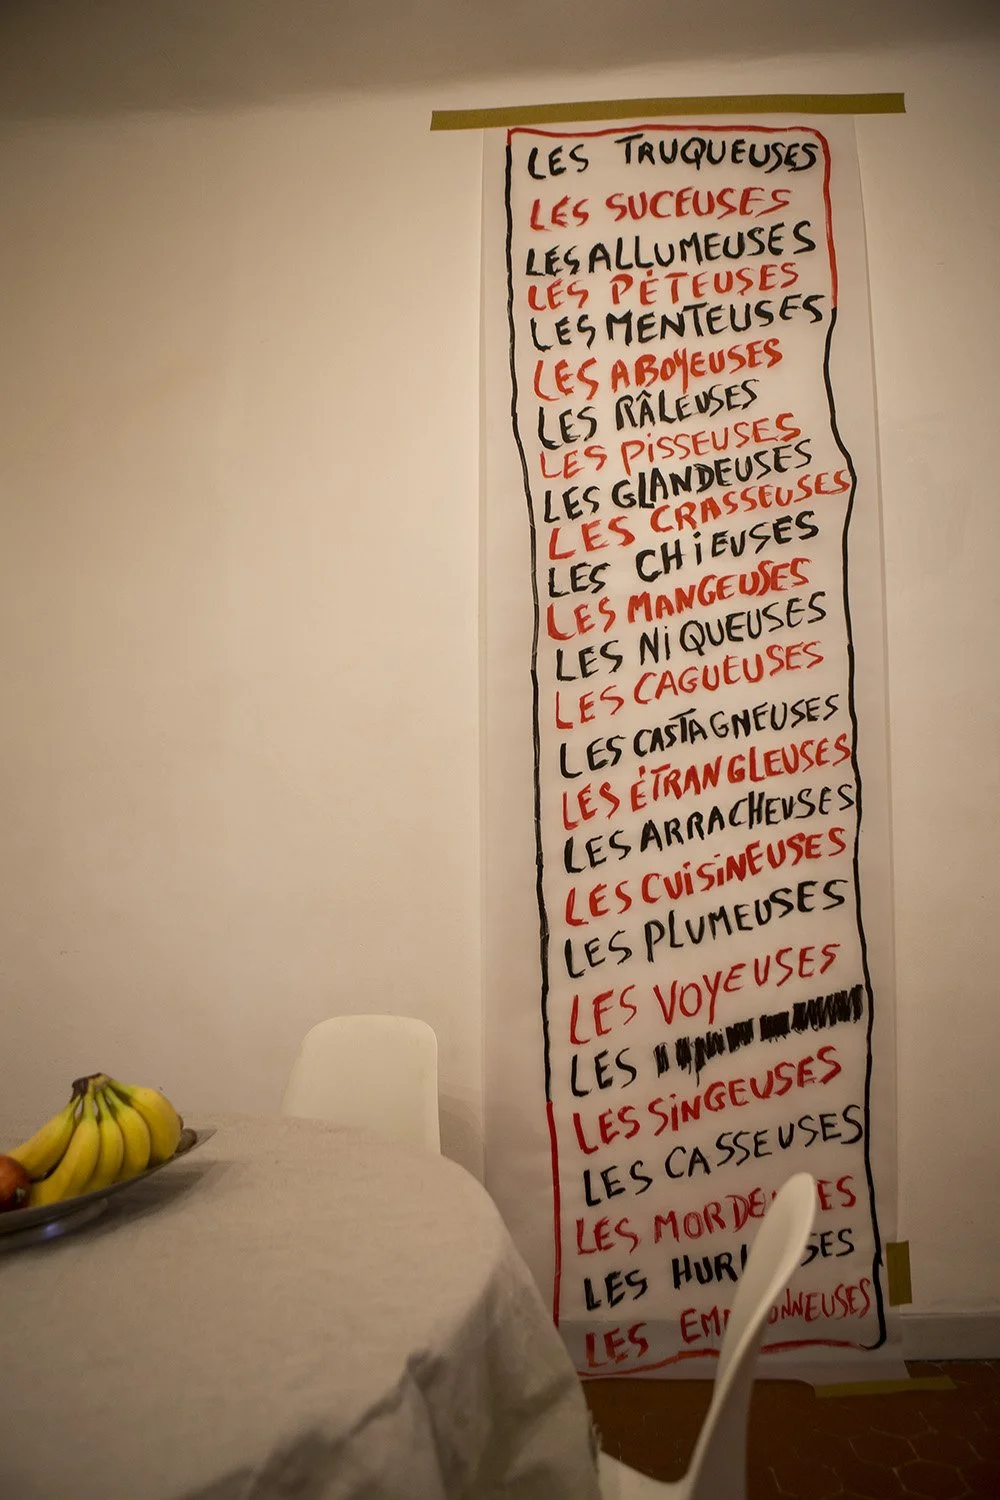 LES TRUQUEUSES
LES SUCEUSES
LES ALLUMEUSES
LES PÉTEUSES
LES MENTEUSES
LES ABOYEUSES
LES RÂLEUSES
LES PISSEUSES
LES GLANDEUSES
LES CRASSEUSES
LES CHIEUSES
LES MANGEUSES
LES NIQUEUSES
LES CAGUEUSES
LES CASTAGNEUSES
LES ÉTRANGLEUSES
LES ARRACHEUSES
LES CUISINEUSES
LES PLUMEUSES
LES VOYEUSES
LES
LES SINGEUSES
LES CASSEUSES
LES
LES
LES